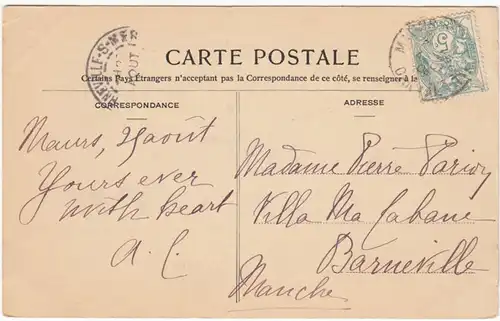 CARTE POSTALE
Certains Pays Étrangers n'acceptant pas la Correspondance de ce côté, se renseigner à la
CORRESPONDANCE
ADRESSE
Maurs, 29 août
Yours ever
with heart
A. C.
Madame Pierre Parioy
Villa Ma Cabane
Barneville
Manche
5